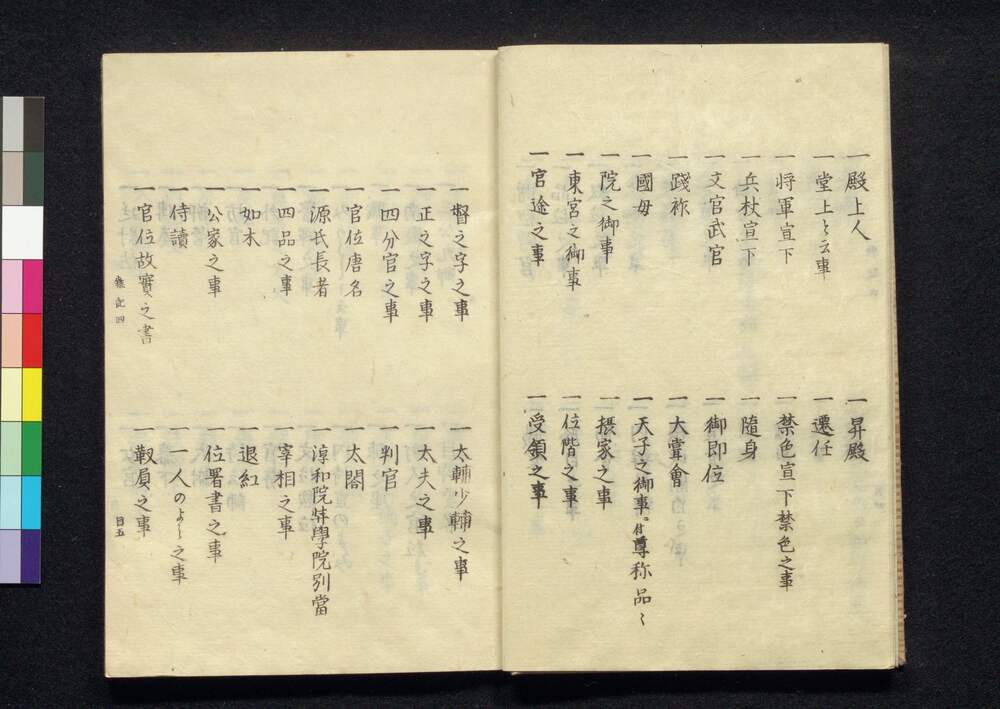 一殿上人　一昇殿
一堂上と云事　一遷任
一将軍宣下　一禁色宣下禁色之事
一兵杖宣下　一隨身
一文官武官　一御即位
一踐祚　一大嘗會
一國母　一天子之御事。付尊称品〻
一院之御事　一摂家之事
一東宮之御事　一位階之事
一官途之事　一受領之事
一督之字之事　一太輔少輔之事
一正之字之事　一太夫之事
一四分官之事　一判官
一官位唐名　一太閤
一源氏長者　一淳和院奘學院別當
一四品之事　一宰相之事
一如木　一退紅
一公家之事　一位署書之事
一侍讀　一一人のよし之事
一官位故實之書　一靫負之事
雜記四　目五